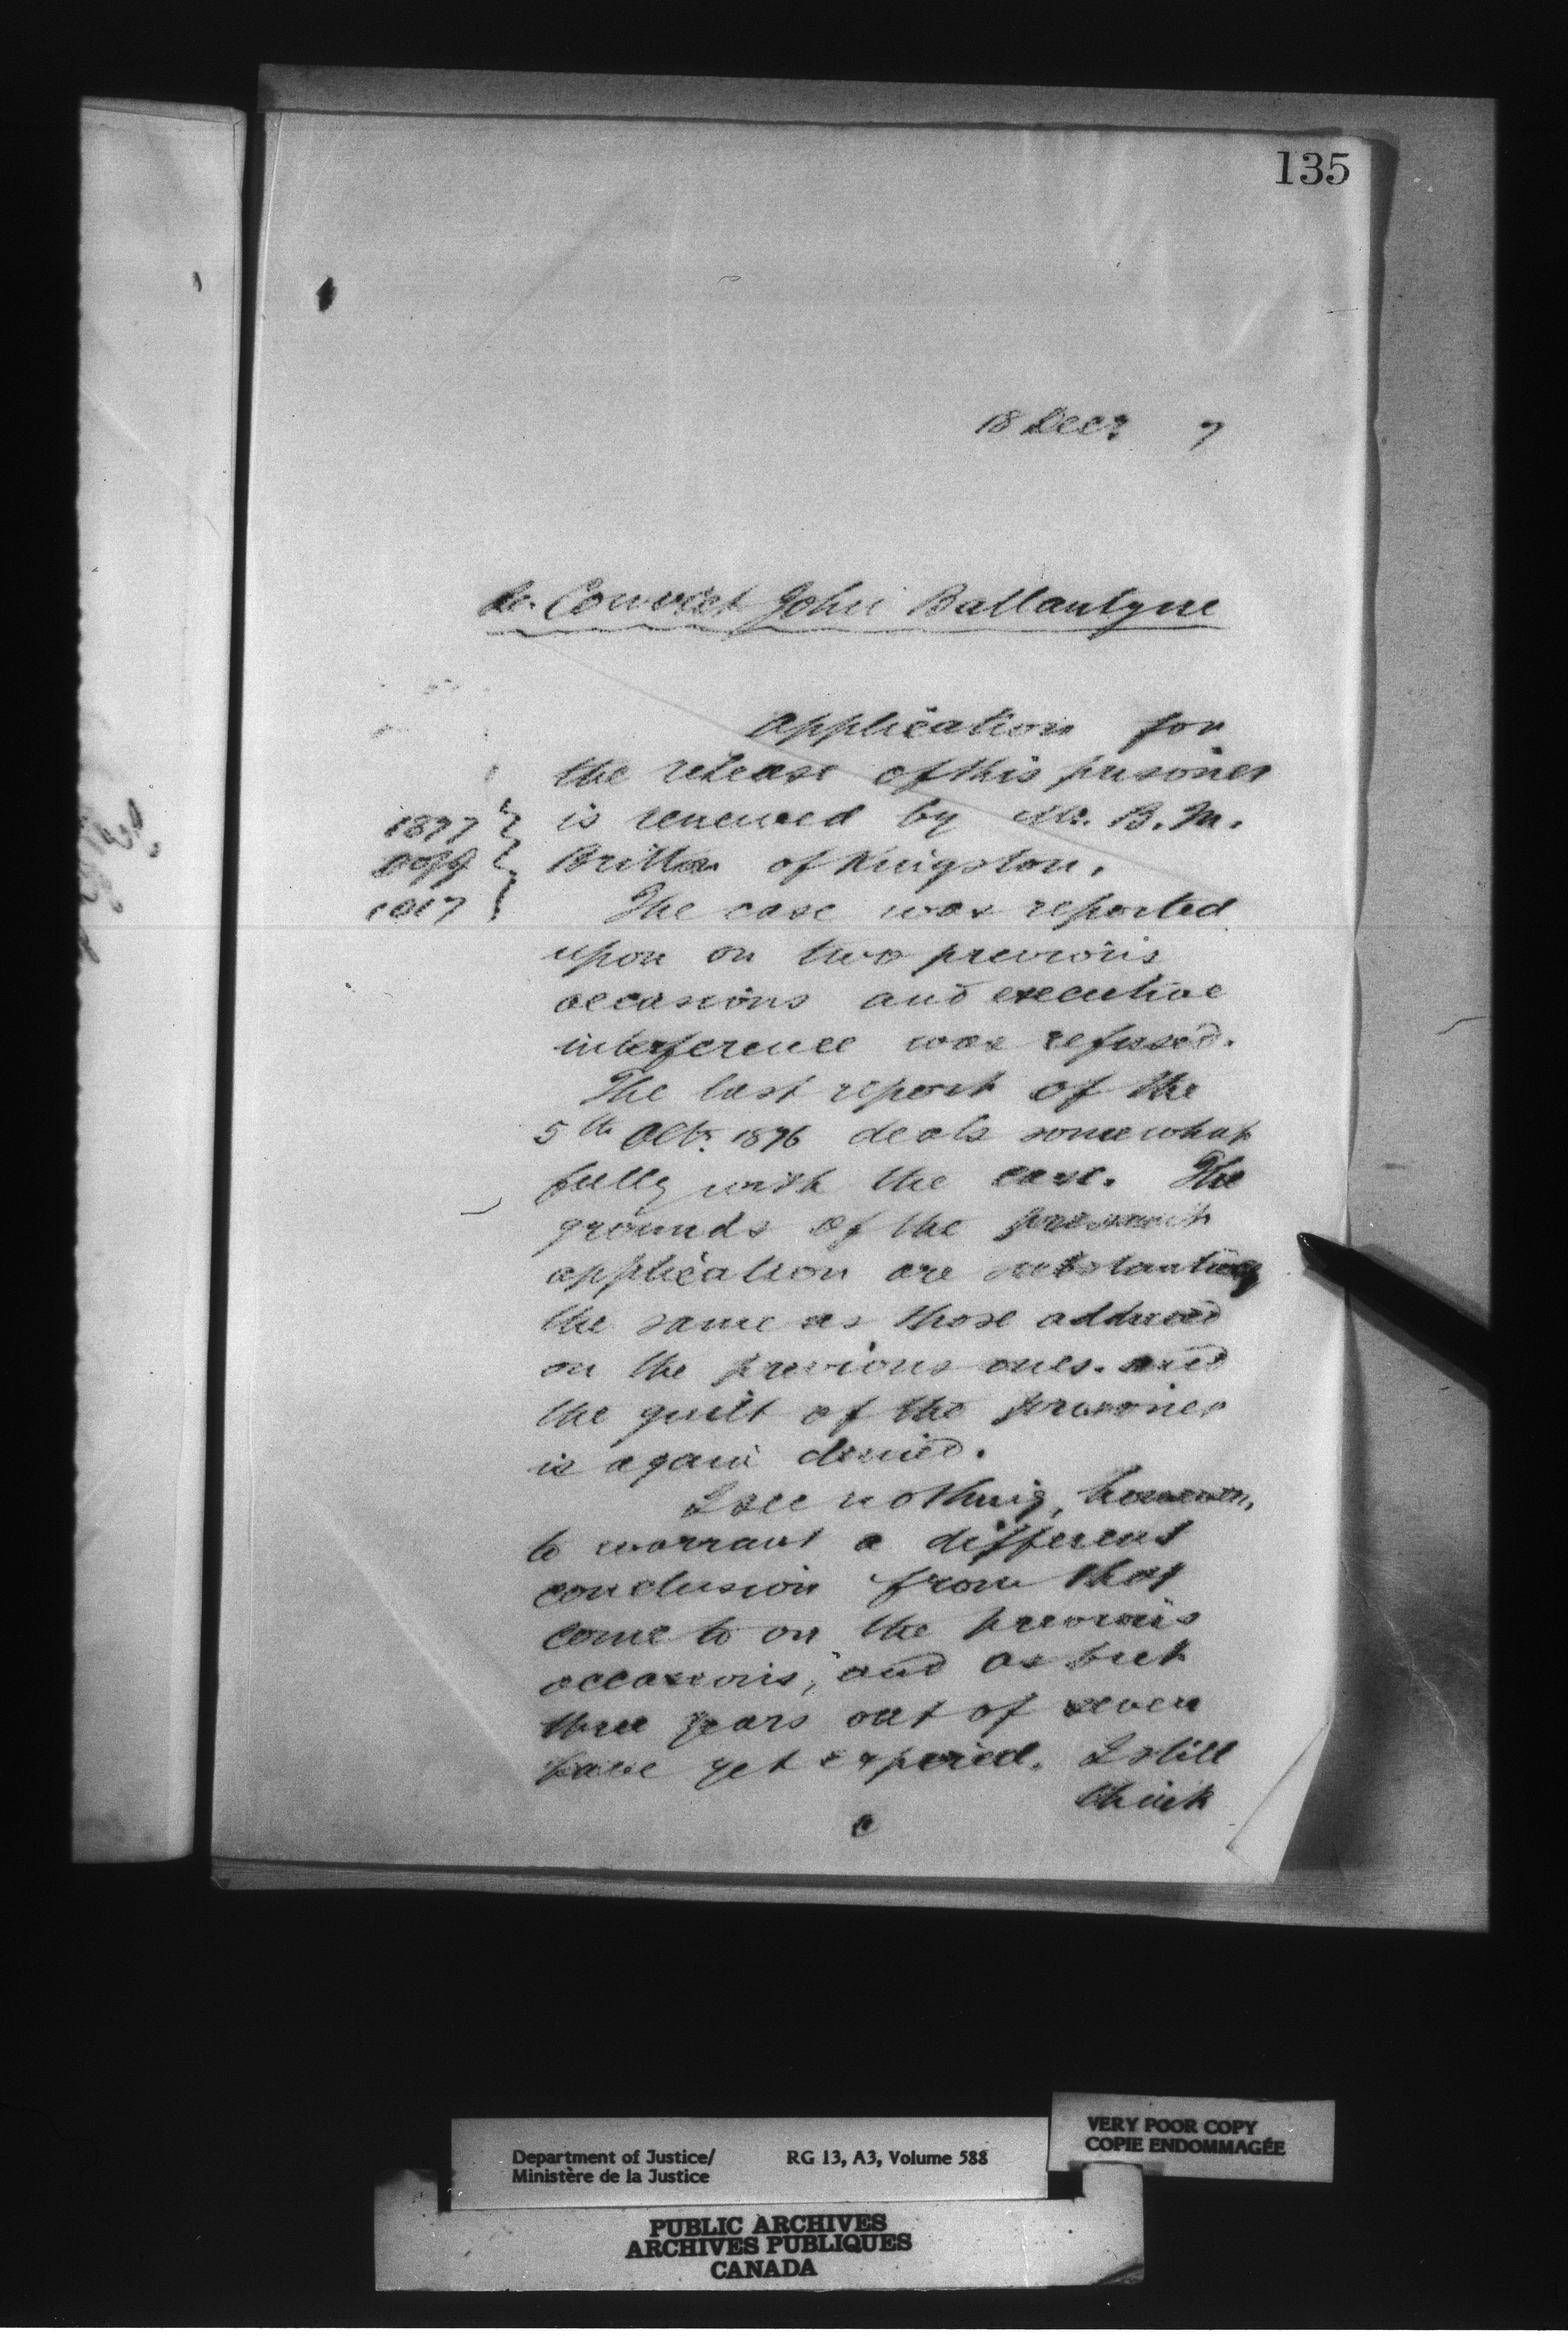 135
18 Decr 7
Re. Convict John Ballantyne
Application for
the release of this prisoner
is renewed by Mr. B. M.
Britton of Kingston.
1877 }
1017 }
The case was reported
upon on two previous
occasions and executive
interference was refused.
The last report of the
5th Octr. 1876 deals somewhat
fully with the case. The
grounds of the present
application are substantially
the same as those adduced
on the previous ones. and
the guilt of the prisoner
is again denied.
I see nothing, however,
to warrant a different
conclusion from that
come to on the previous
occasions, and as but
three years out of seven
have yet expired. I still
think
Department of Justice/
Ministère de la Justice
RG 13, A3, Volume 588
VERY POOR COPY
COPIE ENDOMMAGÉE
PUBLIC ARCHIVES
ARCHIVES PUBLIQUES
CANADA